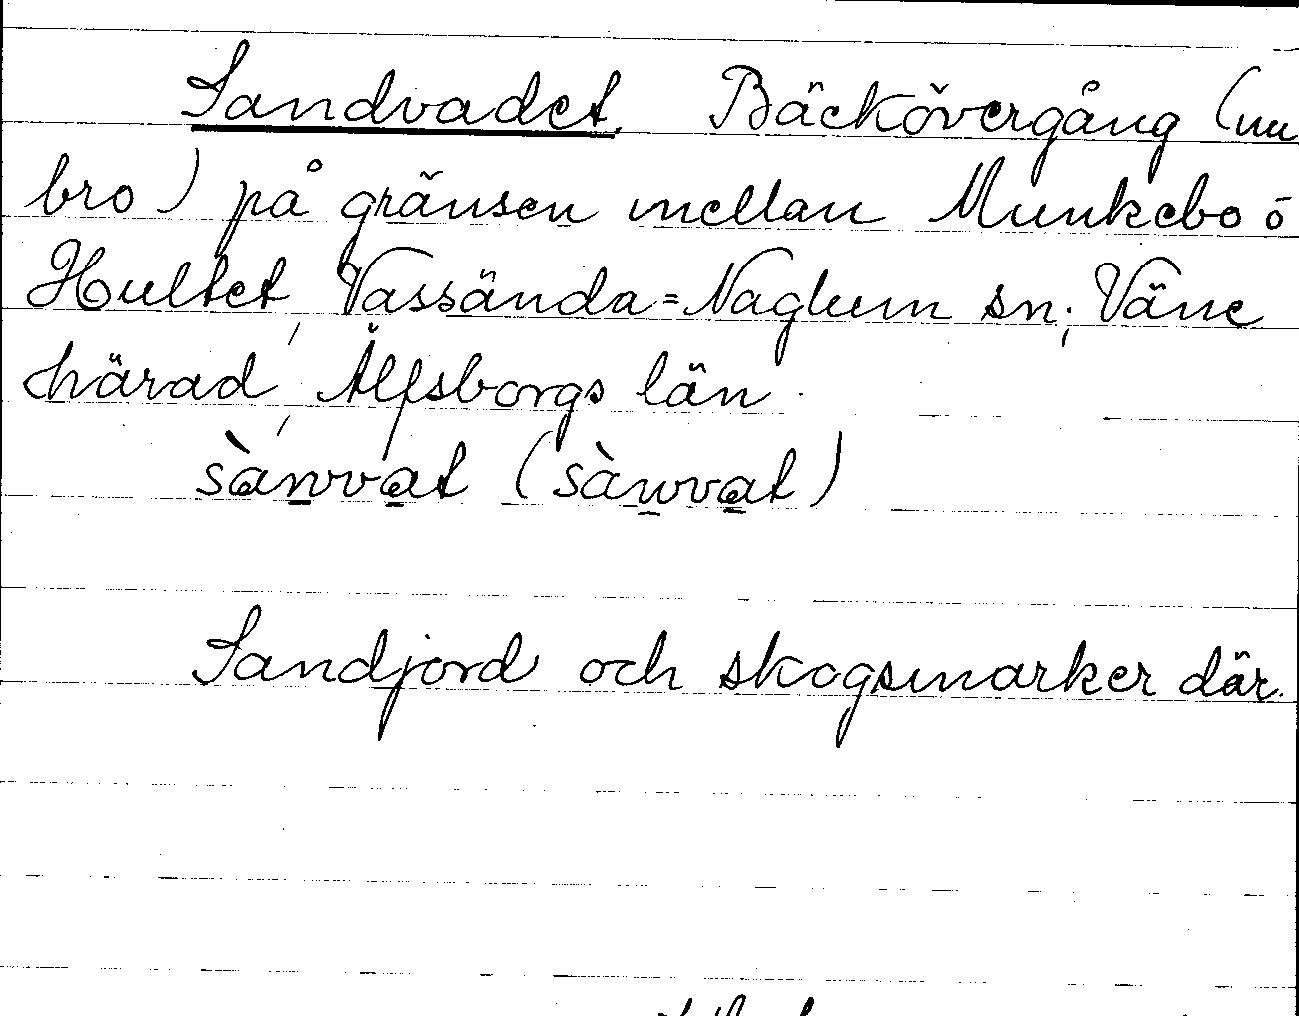 Sandvadet. Bäckövergång (nu
bro) på gränsen mellan Munkebo o
Hultet, Vassända=Naglum sn; Väne
härad, Älfsborgs län.
sànvat (sànvat)
Sandjord och skogsmarker där.